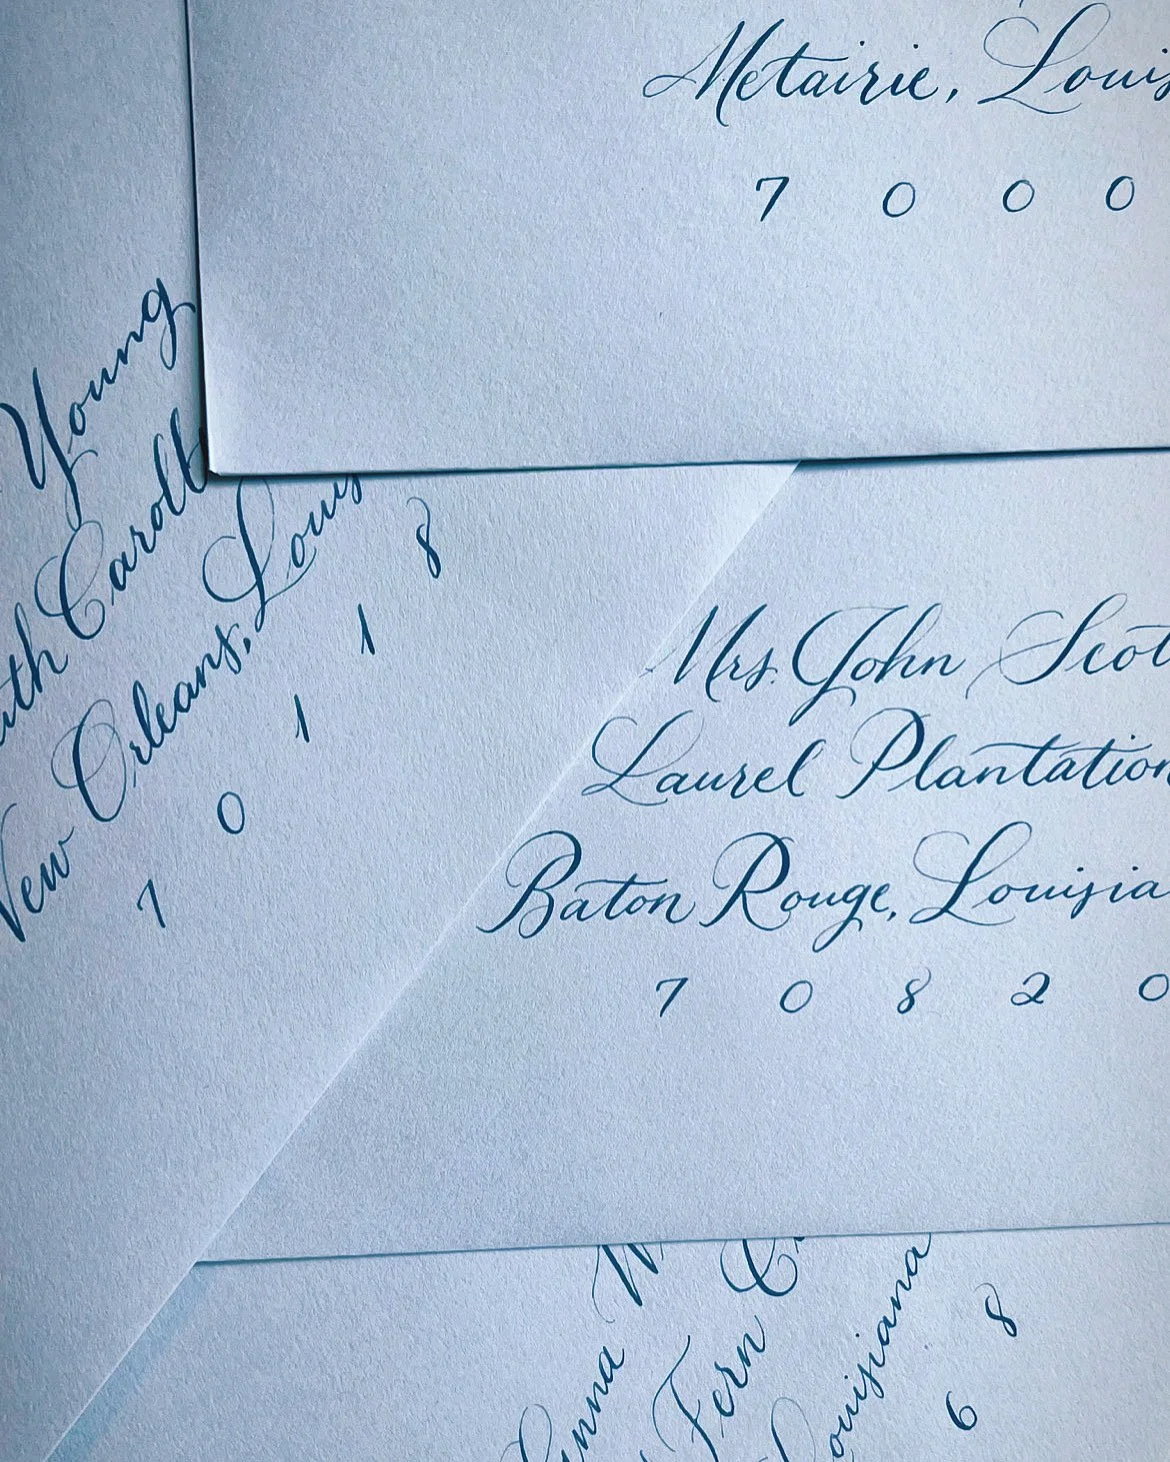 Metairie, Louis
7 0 0 0
Young
uth Caroll
New Orleans, Louis
7 0 1 1 8
Mrs. John Scot
Laurel Plantation
Baton Rouge, Louisia
7 0 8 2 0
Fern C
Louisiana
6 8